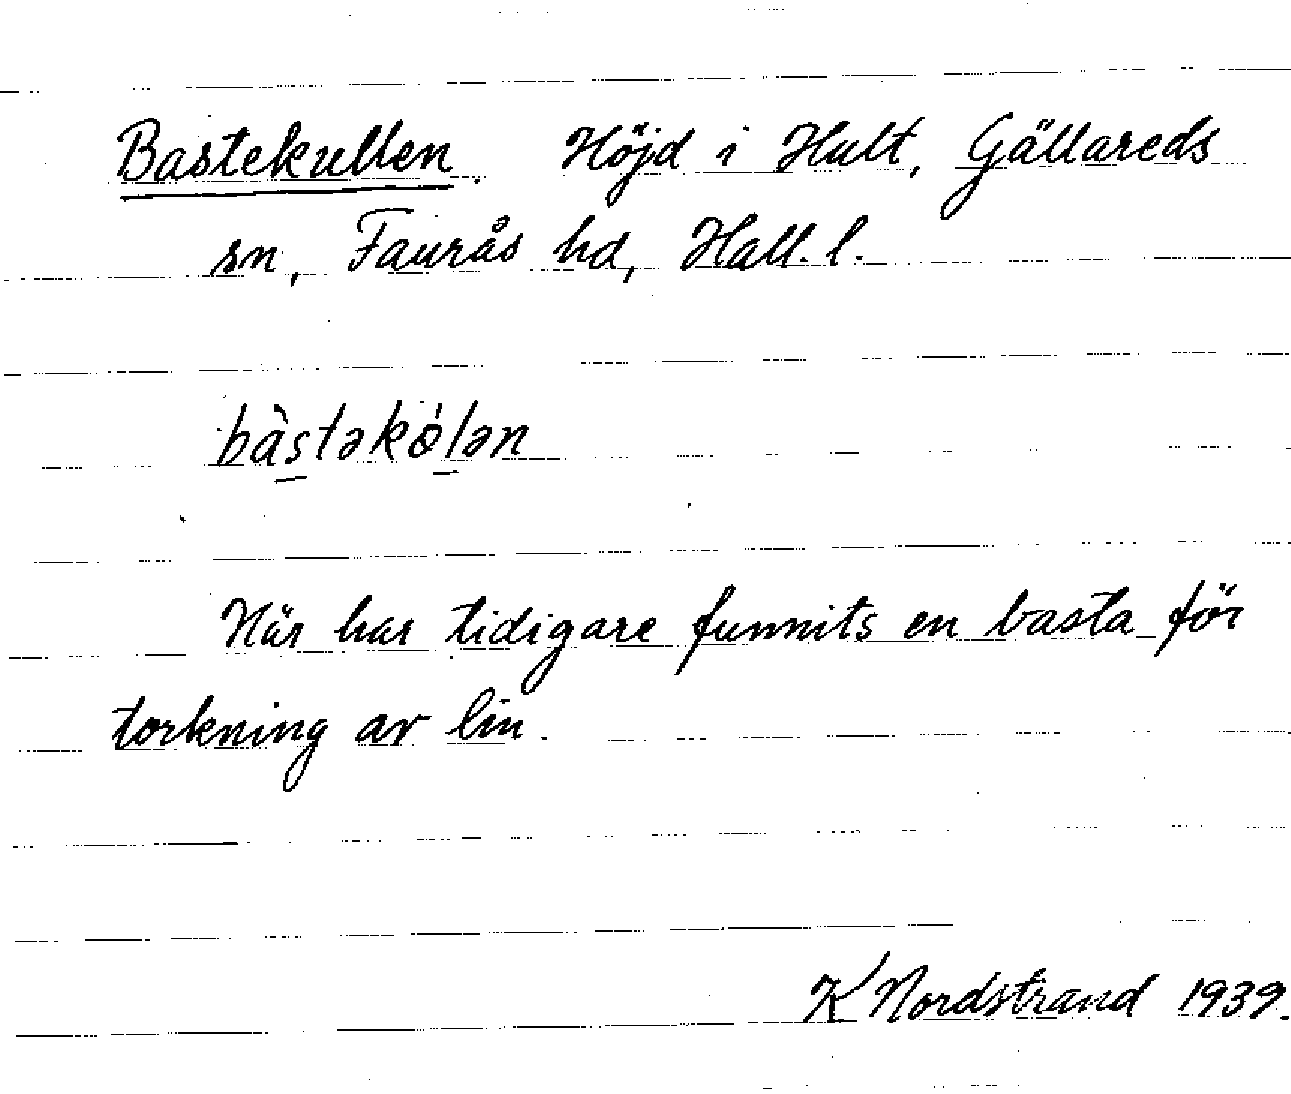 Bastekullen. Höjd i Hult, Gällareds
sn, Faurås hd, Hall. l.
bàstəkǿlən
Här har tidigare funnits en basta för
torkning av lin.
K Nordstrand 1939.